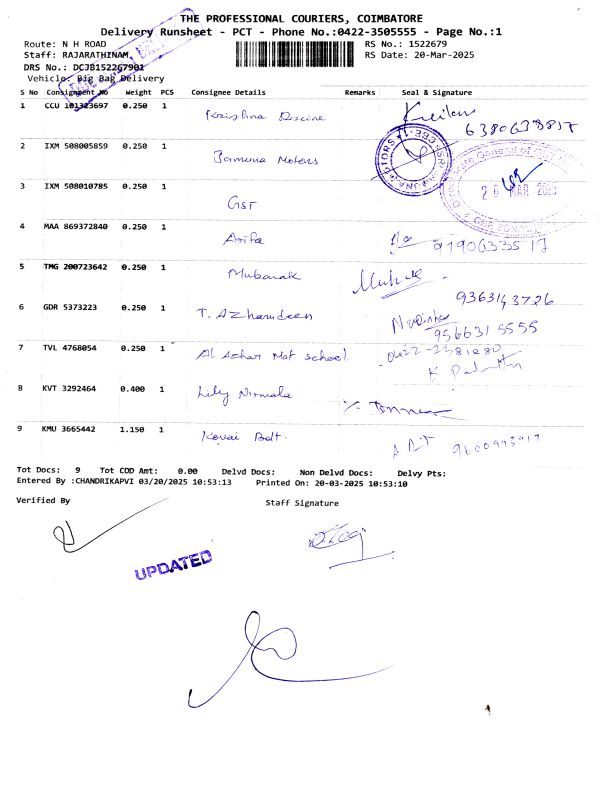 THE PROFESSIONAL COURIERS, COIMBATORE
Delivery Runsheet - PCT - Phone No.:0422-3505555 - Page No.:1
Route: N H ROAD RS No.: 1522679
Staff: RAJARATHINAM, RS Date: 20-Mar-2025
DRS No.: DCJB152267901
Vehicle: Big Bag Delivery
S No Consignment No Weight PCS Consignee Details Remarks Seal & Signature
1 CCU 101323697 0.250 1 Krishna
6380638817
2 IXM 508005859 0.250 1 Jamuna Motors
3 IXM 508010785 0.250 1 GST
20 MAR 2025
4 MAA 869372840 0.250 1 Arifa
5 TMG 200723642 0.250 1 Mubarak
9363143726
6 GDR 5373223 0.250 1 T. Azharudeen
9566315555
7 TVL 4768054 0.250 1 Al Azhar Mat school 0422-2381880
8 KVT 3292464 0.400 1 Lily Nirmala
9 KMU 3665442 1.150 1 Kovai Belt. 9600993917
Tot Docs: 9 Tot COD Amt: 0.00 Delvd Docs: Non Delvd Docs: Delvy Pts:
Entered By :CHANDRIKAPVI 03/20/2025 10:53:13 Printed On: 20-03-2025 10:53:10
Verified By Staff Signature
UPDATED